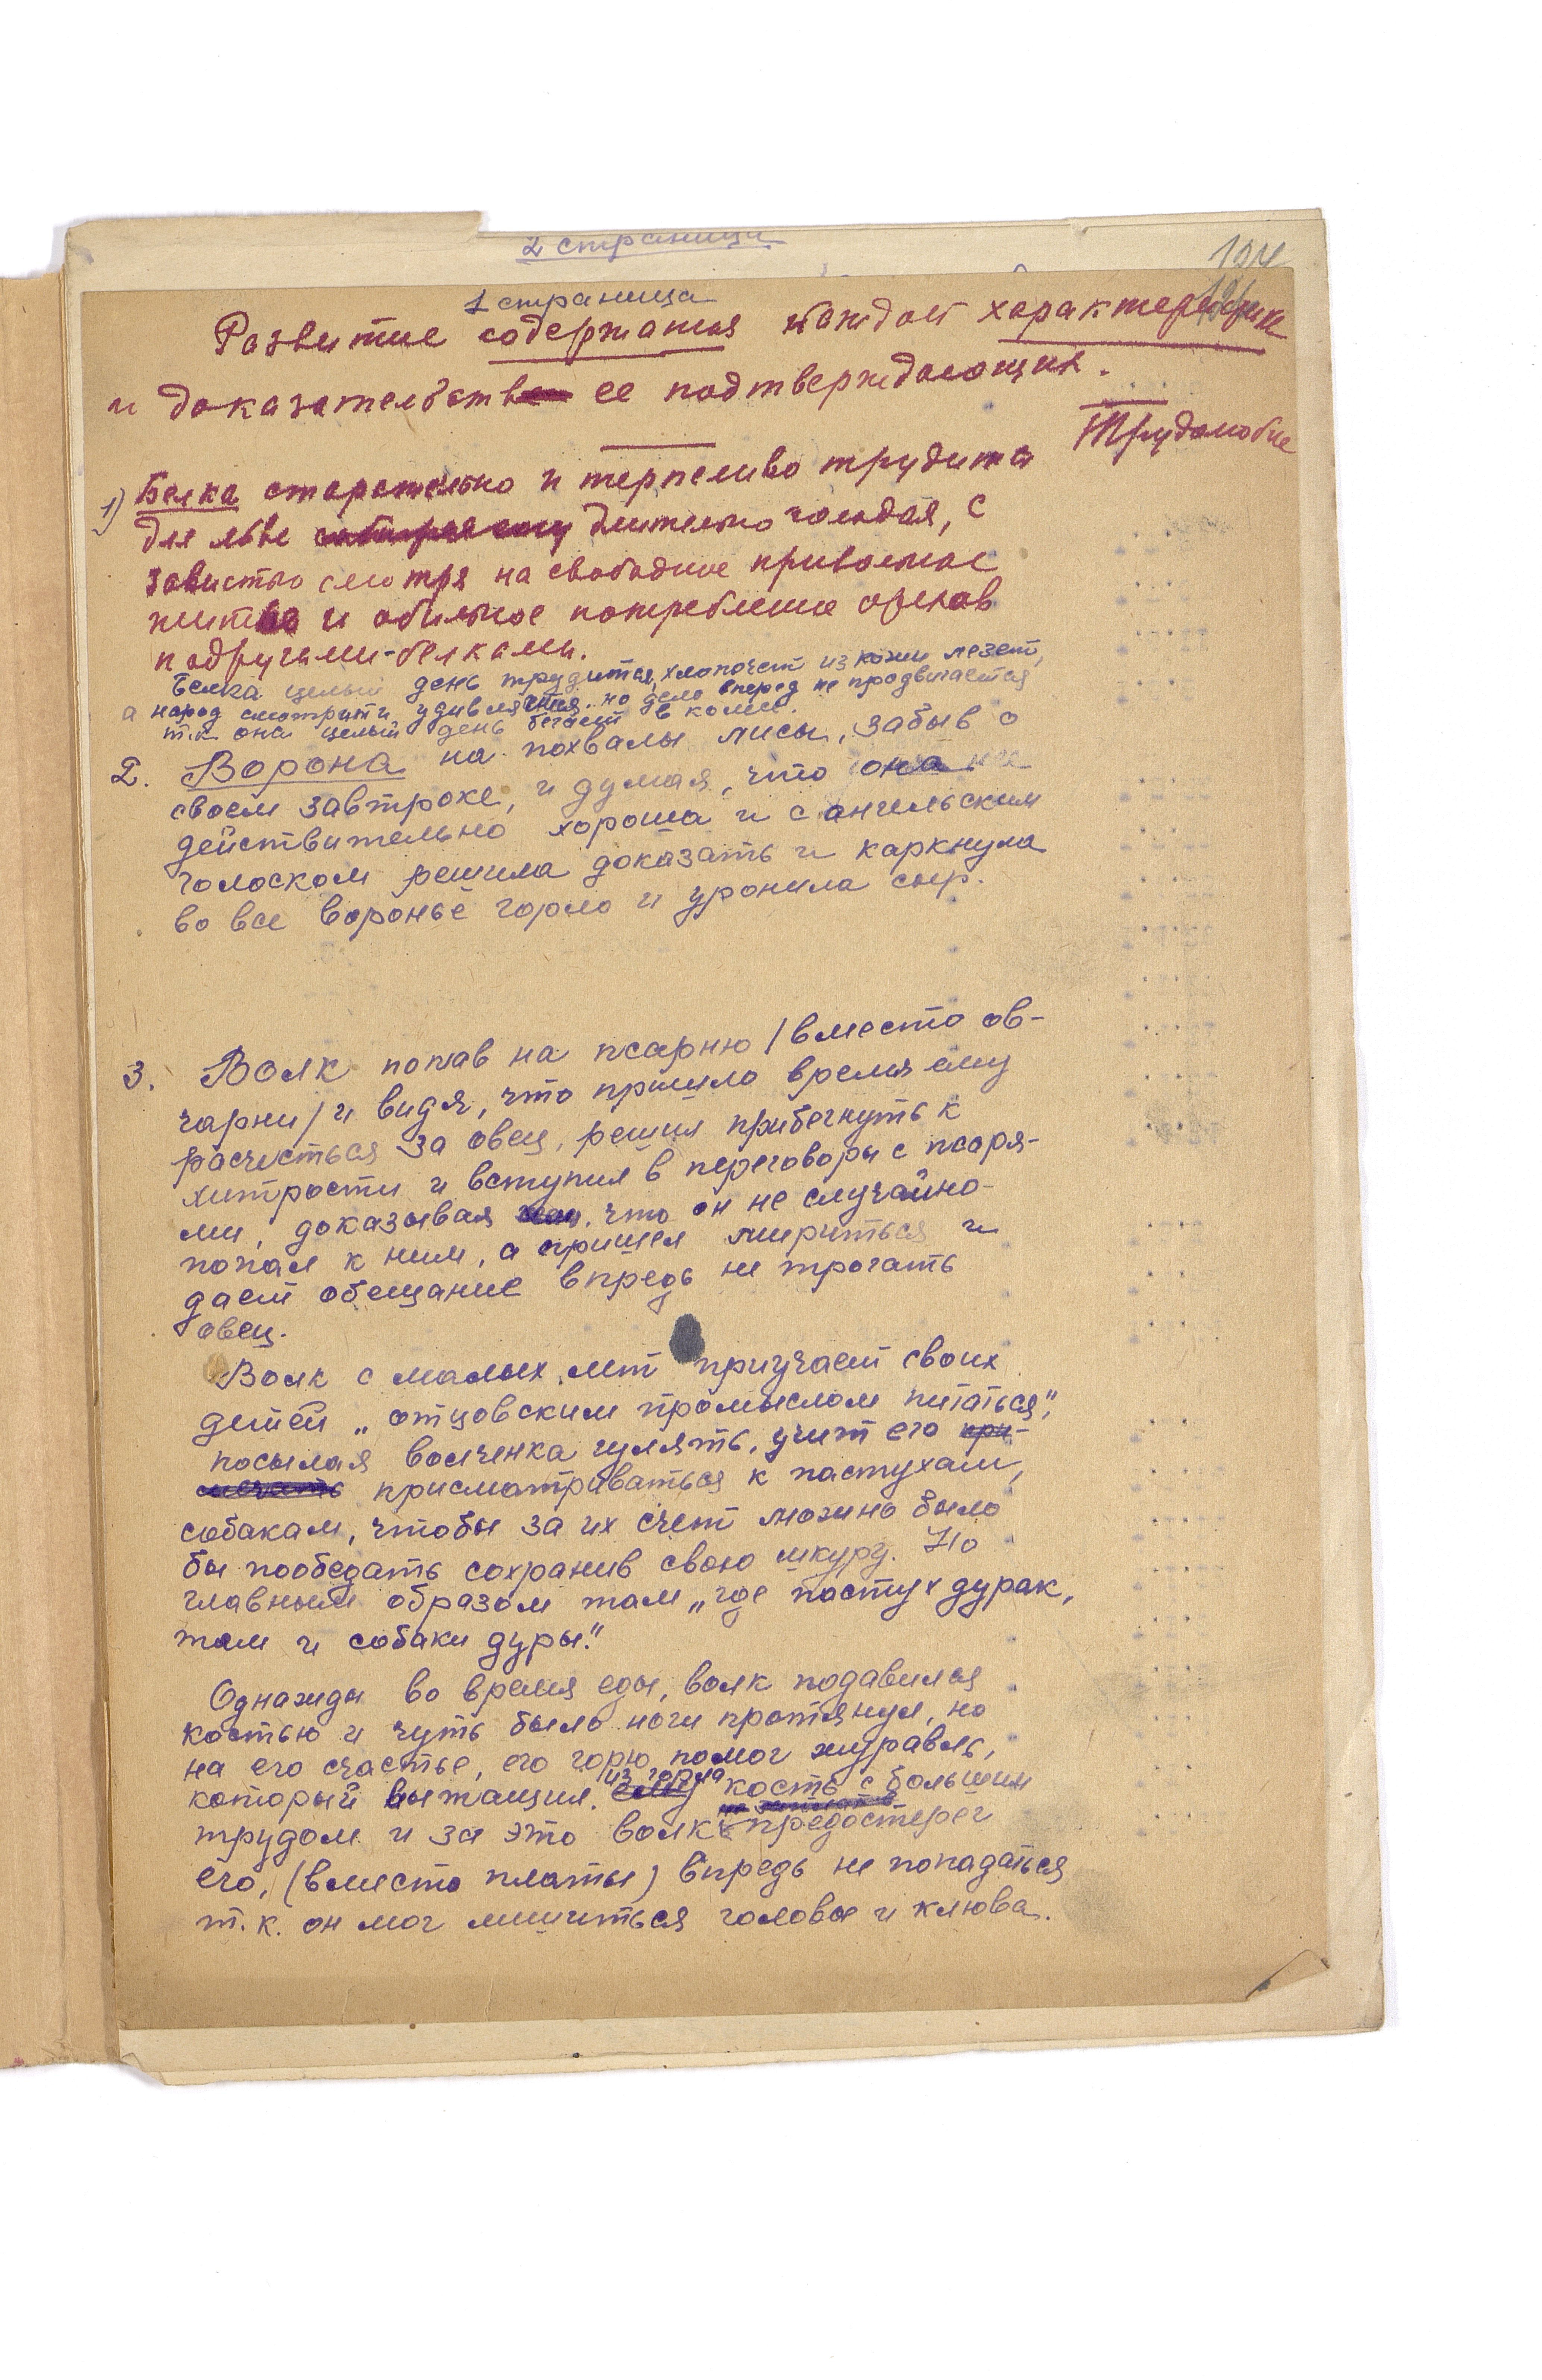 2 страница
124
1 страница
Развитие содержания каждой характеристики
и доказательств ее подтверждающих.
Трудолюбие
1) Белка старательно и терпеливо трудится
для льве длительно голодая, с
завистью смотря на свободное привольное
житье и обильное потребление орехов
подругами-белками.
Белка целый день трудится, хлопочет из кожи лезет,
а народ смотрит и удивляется. но дело вперед не продвигается
т.к она целый день бегает в колесе.
2. Ворона на похвалы лисы, забыв о
своем завтроке, и думая, что она
действительно хороша и с ангельским
голоском решила доказать и каркнула
во все воронье горло и уронила сыр.
3. Волк попав на псарню /вместо ов-
чарни/ и видя, что пришло время ему
расчесться за овец, решил прибегнуть к
хитрости и вступил в переговоры с псаря-
ми, доказывая что он не случайно
попал к ним, а пришел мириться и
дает обещание впредь не трогать
овец.
Волк с малых лет приучает своих
детей „отцовским промыслом питаться",
посылая волченка гулять, учит его при-
мечать присматриваться к пастухам,
собакам, чтобы за их счет можно было
бы пообедать сохранив свою шкуру. Но
главным образом там „где пастух дурак,
там и собаки дуры."
Однажды во время еды, волк подавился
костью и чуть было ноги протянул, но
на его счастье, его горю помог журавль,
который вытащил ему из горла кость с большим
трудом и за это волк предостерег
его, (вместо платы) впредь не попадаться
т.к. он мог лишиться головы и клюва.